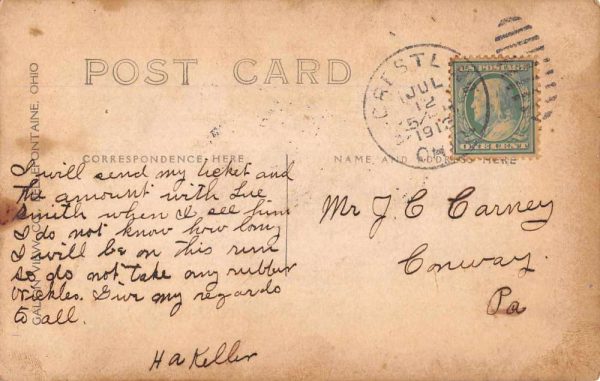 POST CARD
CRESTL
JUL
12
1912
U.S. POSTAGE
ONE CENT
CORRESPONDENCE HERE
NAME AND ADDRESS HERE
I will send my ticket and
the amount with Lue
Smith when I see him
I do not know how long
I will be on this run
so do not take any rubber
nickles. Give my regards
to all.
H A Keller
Mr J. C Carney
Conway.
Pa
BELLEFONTAINE, OHIO